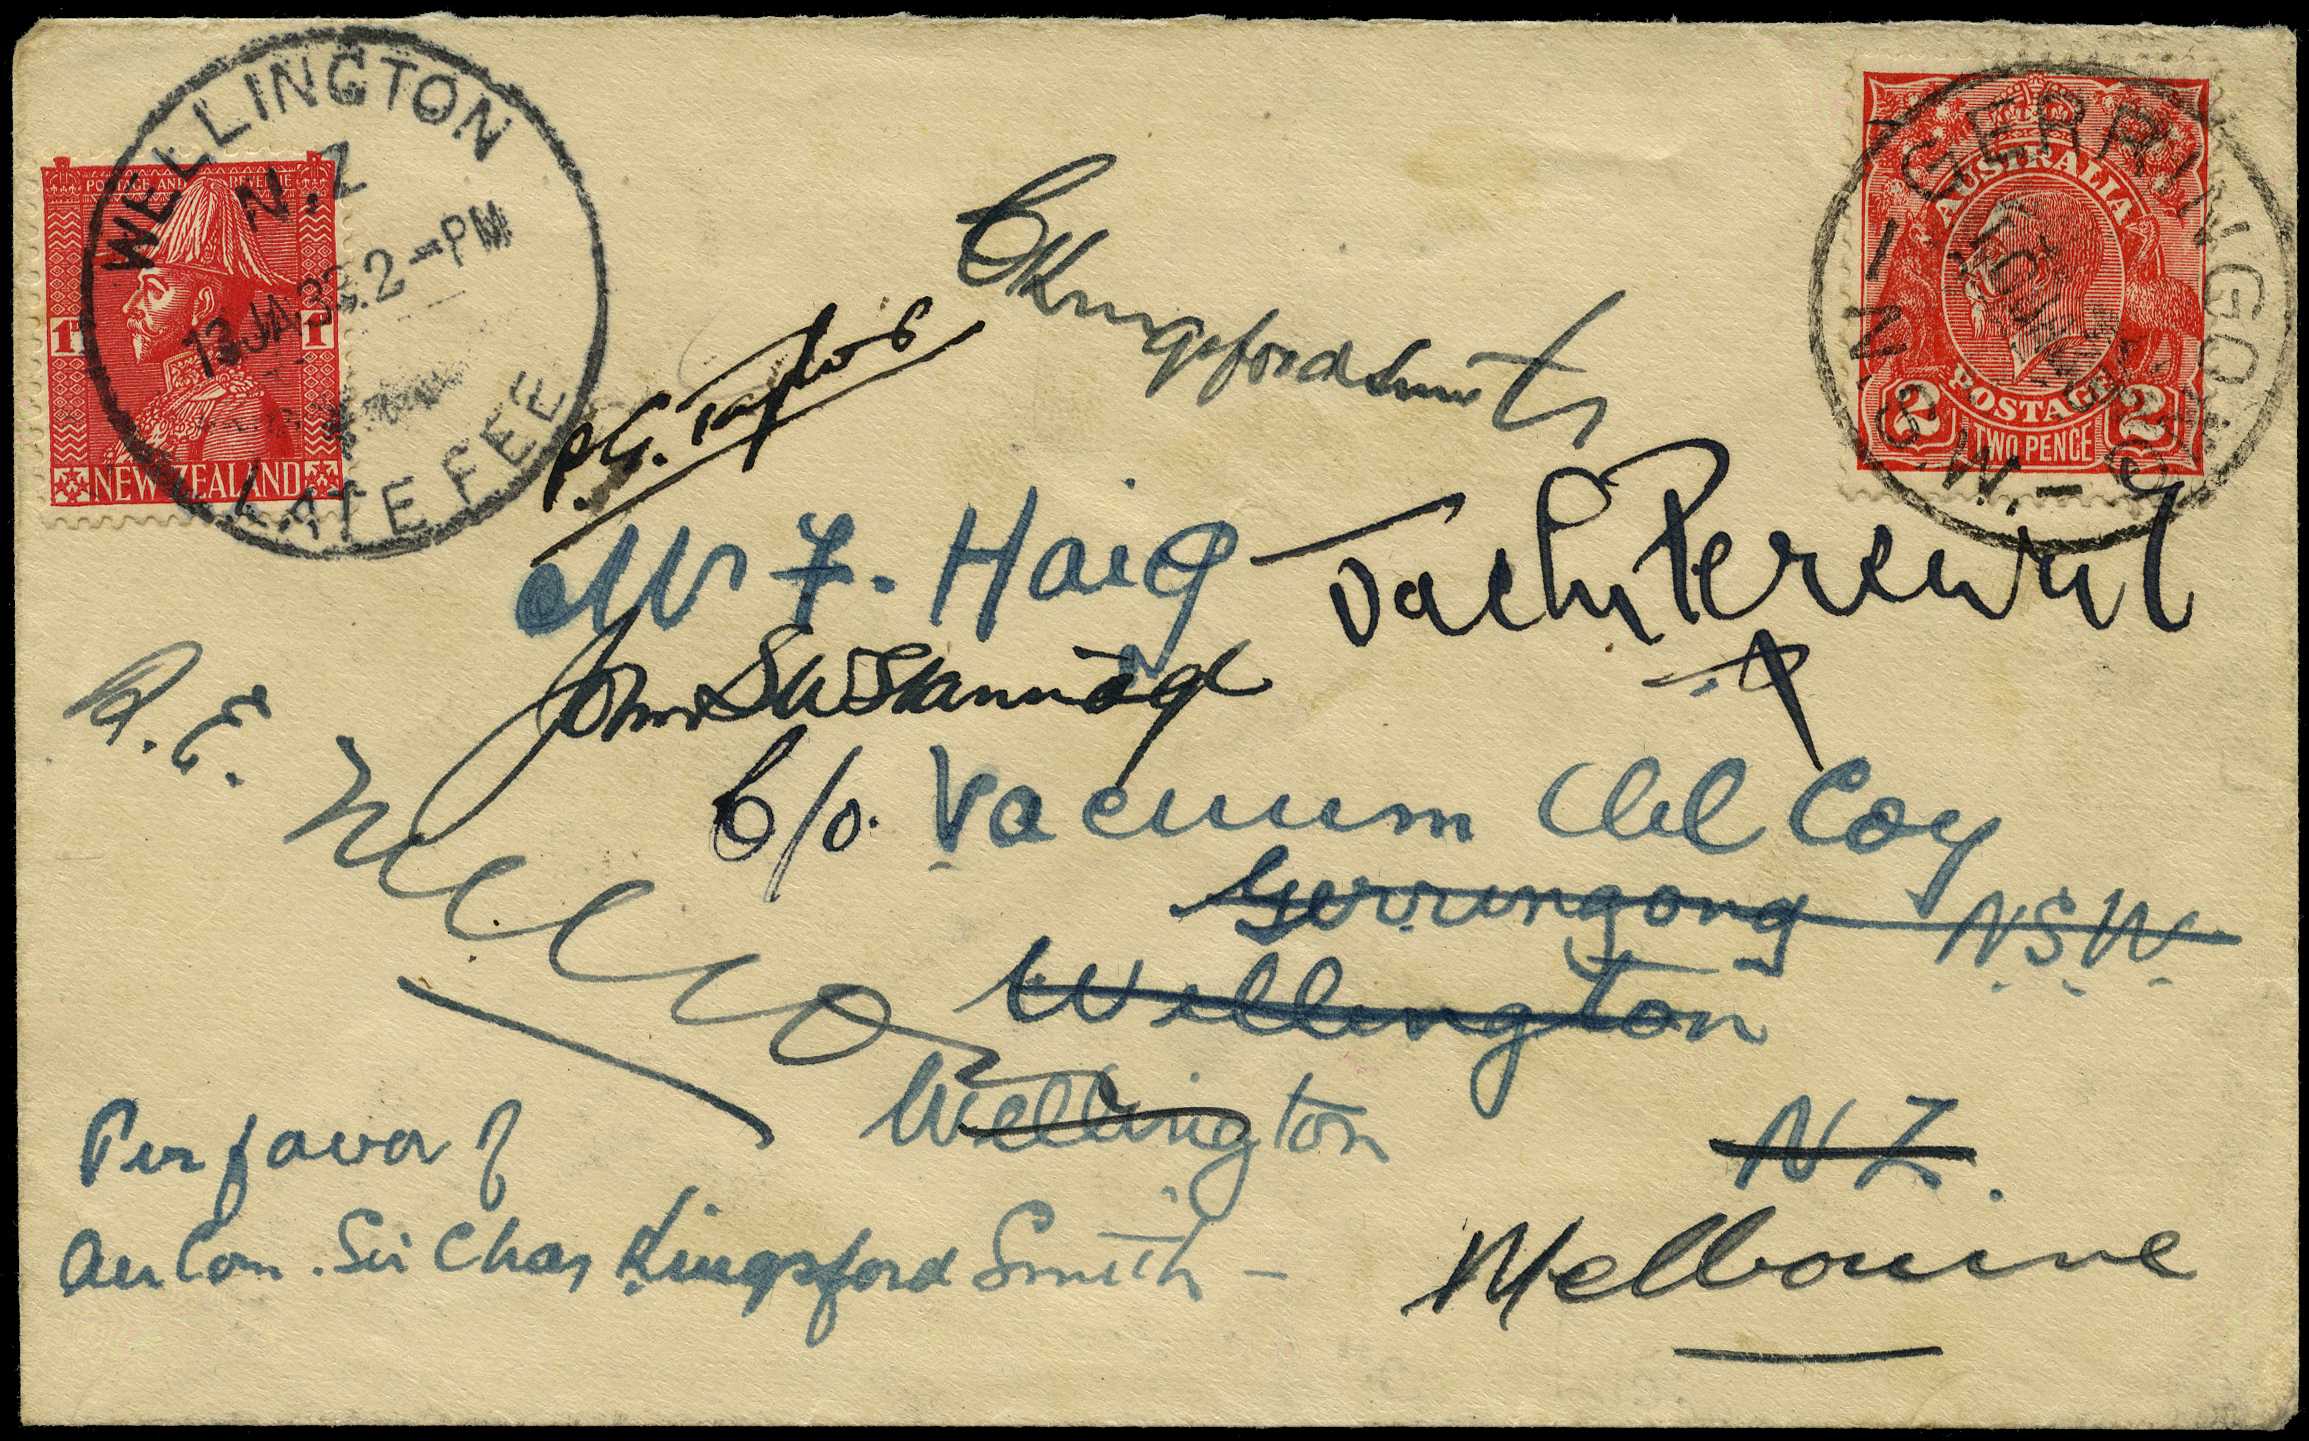 WELLINGTON
N.Z
13 JA.33.2-PM
LATE FEE
POSTAGE AND REVENUE
1D 1D
NEW ZEALAND
GERRINGONG
N.S.W.
AUSTRALIA
POSTAGE
2 2
TWO PENCE
CKingsford Smith
P.G. Taylor
Mr F. Haig
John Stannage
R. E.
C/o. Vacuum Oil Coy
Gerringong N.S.W.
Wellington
Wellington N Z.
Per favor of
Air Com. Sir Chas Kingsford Smith -
Melbourne